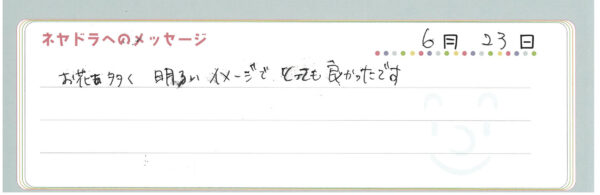 ネヤドラへのメッセージ
6月 23日
お花も多く 明るい イメージで とっても 良かったです